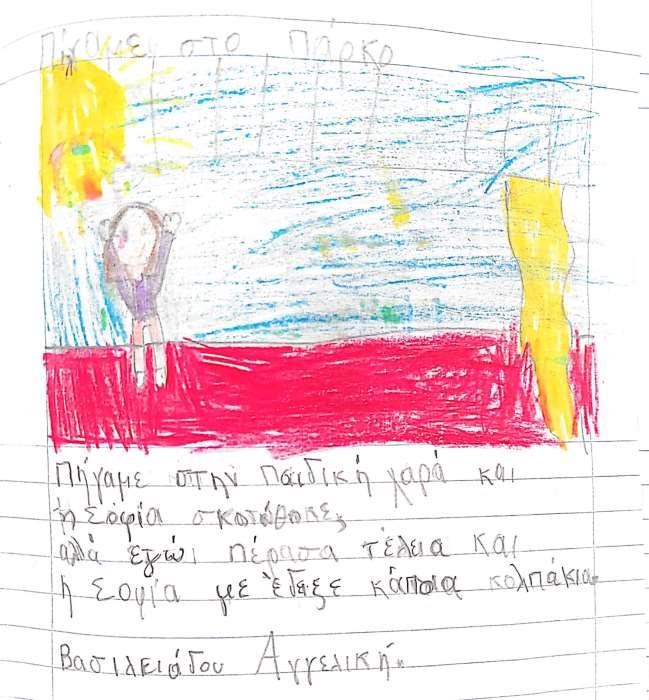 Πήγαμε στο πάρκο
Πήγαμε στην παιδική χαρά και
ή Σοφία
αλλά εγώ πέρασα τέλεια και
η Σοφία με έδειξε κάποια κολπάκια
Βασιλειάδου Αγγελική.